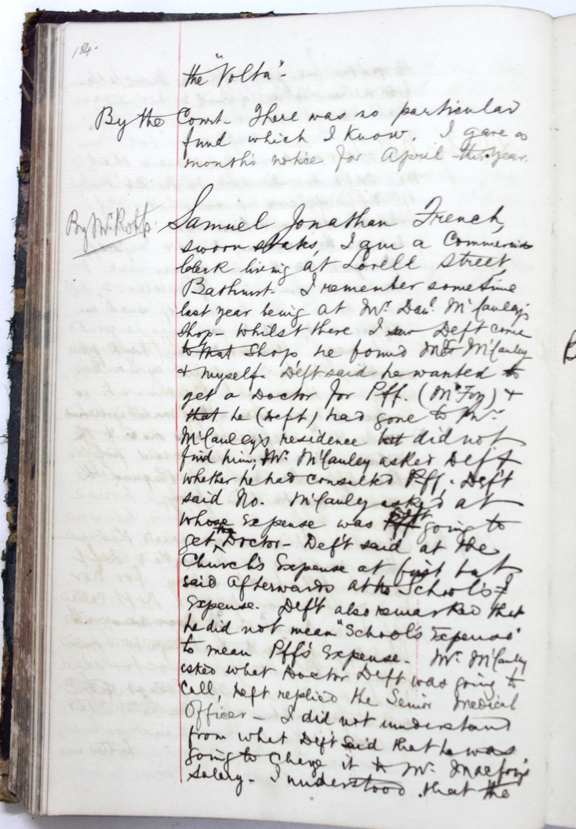 184.
the "Volta".-
By the Court- There was no particular
fund which I know. I gave a
month's notice for April this year.
By Mr. Robbs. Samuel Jonathan French,
sworn states, I am a Commercial
Clerk living at Lovell Street,
Bathurst. I remember sometime
last year being at Mr. Danl. McCauley's
shop- Whilst there I saw Deft come
to that Shop he found Mr McCauley
& myself. Deft said he wanted to
get a Doctor for Pff. (McFoy) &
that he (Deft) had gone to Mr.
McCauley's residence but did not
find him, Mr. McCauley asked Deft
whether he had consulted Pff. Deft
said No. McCauley asked at
whose Expense was Pff Deft going to
get the Doctor- Deft said at the
Church's Expense at first but
said afterwards at the School's
Expense. Deft also remarked that
he did not mean "School's Expense"
to mean Pff's Expense. Mr. McCauley
asked what Doctor Deft was going to
Call, Deft replied the Senior Medical
Officer- I did not understand
from what Deft said that he was
going to Charge it to Mr.
Salary. I understood that the